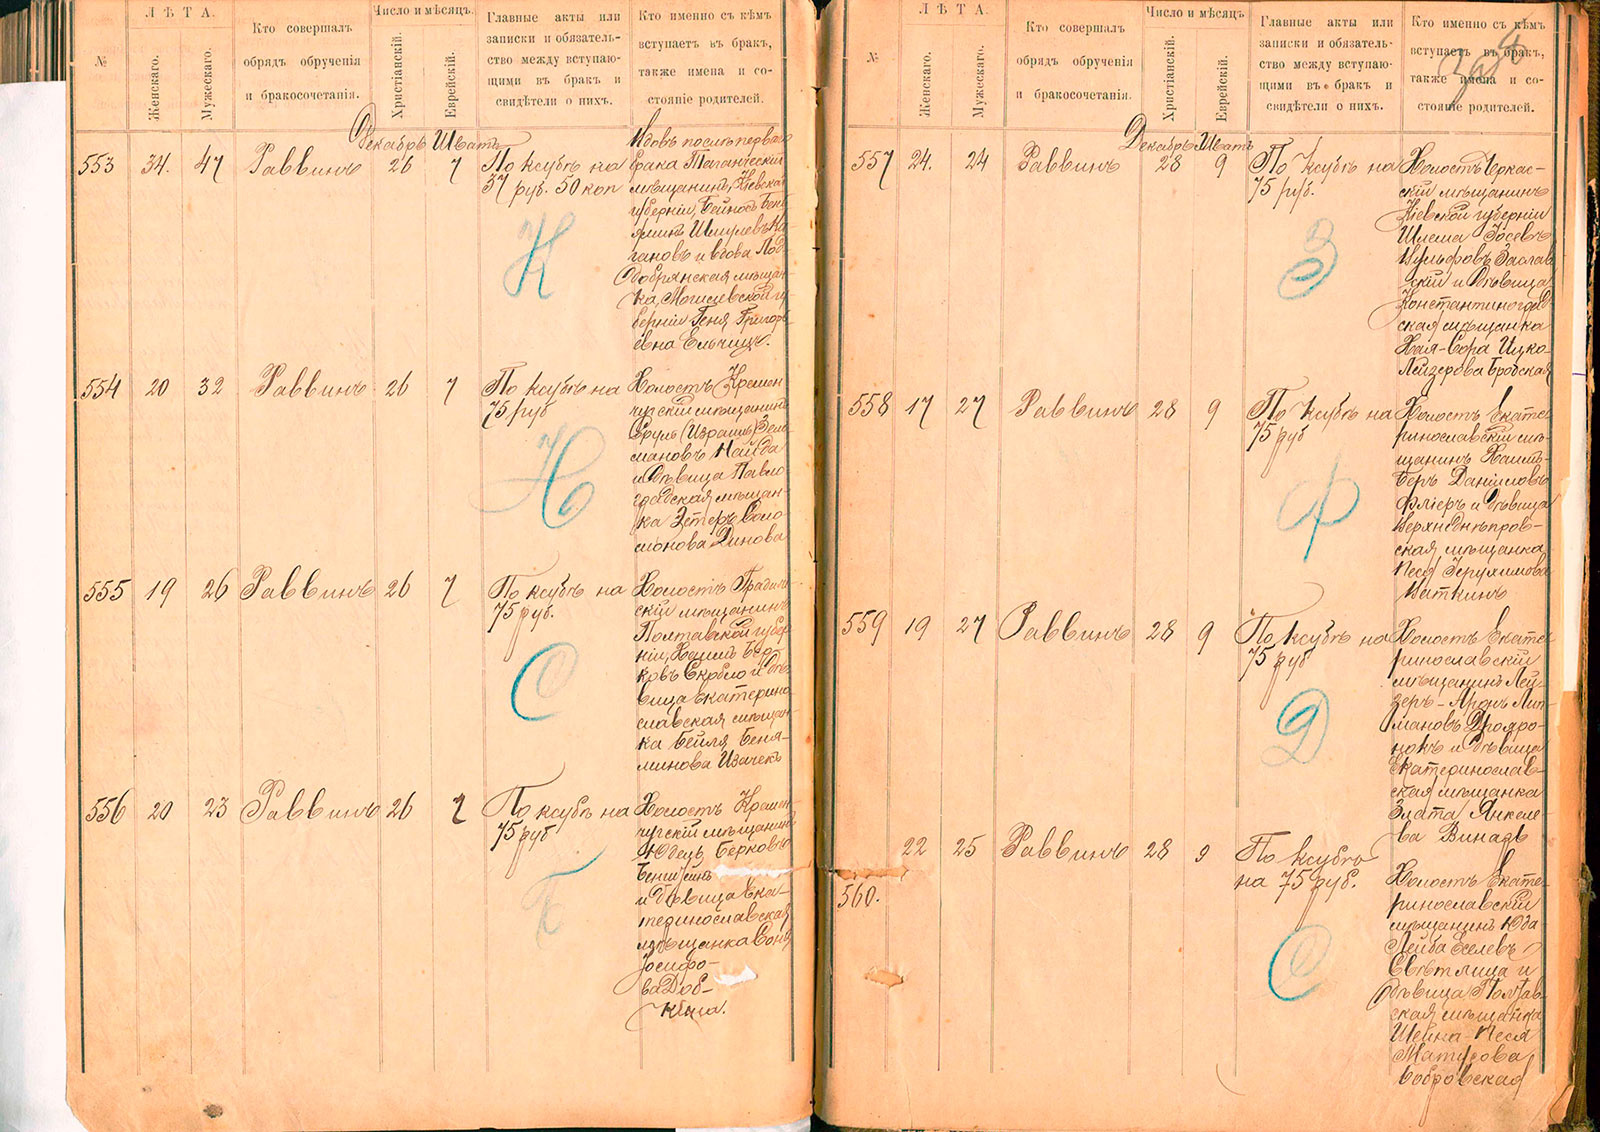 №
ЛѢТА.
Женскаго.
Мужескаго.
Кто совершалъ
обрядъ обрученія
и бракосочетанія.
Число и мѣсяцъ.
Христіанскій.
Еврейскій.
Главные акты или
записки и обязатель-
ство между вступаю-
щими въ бракъ и
свидѣтели о нихъ.
Кто именно съ кѣмъ
вступаетъ въ бракъ,
также имена и со-
стояніе родителей.
Декабрь Шватъ
553 34. 47 Раввинъ 26 7
По ксубѣ на
37 руб. 50 коп
Вдовъ послѣ перваго
брака Таганческій
мѣщанинъ, Кіевской
губерніи, Бейносъ Бен
яминъ Шмулевъ Ка
гановъ и вдова
добрянская мѣщан
ка, Могилевской гу
берніи Геня Григорь
евна Ельчицъ.
Н
554 20 32 Раввинъ 26 7
По ксубѣ на
75 руб
Холостъ Кремен
чугскій мѣщанинъ
Сруль (Израиль) Зель
мановъ
и дѣвица Павло
градская мѣщан-
ка Эстеръ Соло
монова Динова
Н
555 19 26 Раввинъ 26 7
По ксубѣ на
75 руб.
Холостъ Градиж
скій мѣщанинъ
Полтавской губер
ніи, Хаимъ Бер
ковъ Скобло и дѣ
вица Екатерино
славская мѣщан-
ка Бейля Беня-
минова Изачекъ
С
556 20 23 Раввинъ 26 7
По ксубѣ на
75 руб
Холостъ Кремен
чугскій мѣщанинъ
Юдель Берковъ
и дѣвица Ека-
теринославская
мѣщанка Соня
Іосифо-
ва Доб-
кина.
Б
№
ЛѢТА.
Женскаго.
Мужескаго.
Кто совершалъ
обрядъ обрученія
и бракосочетанія.
Число и мѣсяцъ.
Христіанскій.
Еврейскій.
Главные акты или
записки и обязатель-
ство между вступаю-
щими въ бракъ и
свидѣтели о нихъ.
Кто именно съ кѣмъ
вступаетъ въ бракъ,
также имена и со-
стояніе родителей.
Декабрь Шватъ
557 24. 24 Раввинъ 28 9
По ксубѣ на
75 руб.
Холостъ Черкас-
скій мѣщанинъ
Кіевской губерніи
Шлема Іосевъ
Вульфовъ Заслав
скій и дѣвица
Константиноград
ская мѣщанка
Хая-Сора Ицко-
Лейзерова Бродская
З
558 17 27 Раввинъ 28 9
По ксубѣ на
75 руб
Холостъ Екате
ринославскій мѣ-
щанинъ Хаимъ-
Беръ Даніиловъ
Фліеръ и дѣвица
Верхнеднѣпров-
ская мѣщанка
Песя Іерухимова
Ваткинъ
Ф
559 19 27 Раввинъ 28 9
По ксубѣ на
75 руб
Холостъ Екате
ринославскій
мѣщанинъ Лей-
зеръ-Аронъ Лип-
мановъ
нокъ и дѣвица
Екатеринослав-
ская мѣщанка
Злата Янкеле-
ва Винадъ
Д
560. 22 25 Раввинъ 28 9
По ксубѣ
на 75 руб.
Холостъ Екате-
ринославскій
мѣщанинъ Юда-
Лейба Еселевъ
Свѣтлица и
дѣвица Полтав-
ская мѣщанка
Шейна-Песя
Матусова
Бобровская
С